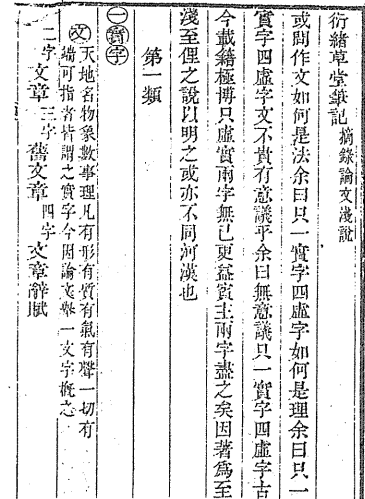 衍緒草堂筆記 摘錄論文淺說
或問作文如何是法余曰只一實字四虛字如何是理余曰只一
實字四虛字文不貴有意議乎余曰無意議只一實字四虛字古
今載籍極博只虛實兩字無已更益賓主兩字盡之矣因著為至
淺至俚之說以明之或亦不同河漢也
第一類
㊀實字
文 天地名物象數事理凡有形有質有氣有聲一切有
端可指者皆謂之實字今因論文舉一文字概之
二字 文章 三字 舊文章 四字 文章辭賦